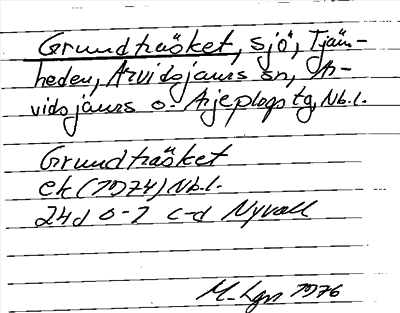 Grundträsket, sjö, Tjäm-
heden, Arvidsjaurs sn, Ar-
vidsjaurs o. Arjeplogs tg, Nb.l.
Grundträsket
ek (1974) Nb.l.
24d 0-1 c-d Nyvall
M-Lgn 1976